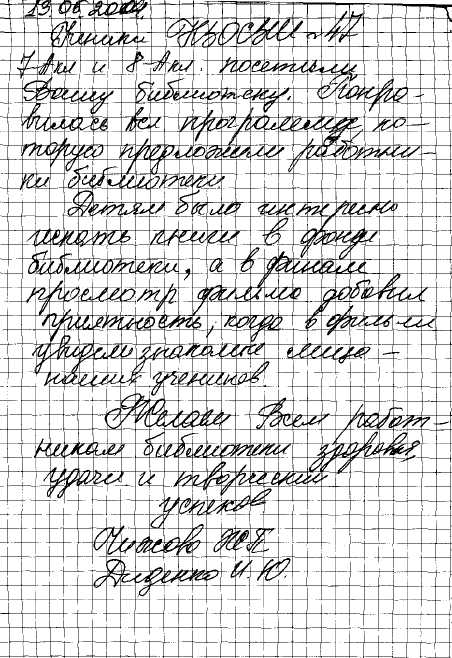 Ученики КЗОСШ №47
7-А кл и 8-А кл. посетили
Вашу библиотеку. Понра-
вилась вся программа, ко-
торую предложили работни-
ки библиотеки
Детям было интересно
искать книги в фонде
библиотеки, а в финале
просмотр фильма добавил
приятность, когда в фильме
увидели знакомые лица -
наших учеников.
Желаем Всем работ-
никам библиотеки здоровья,
удачи и творческих
успехов
Диденко И.Ю.